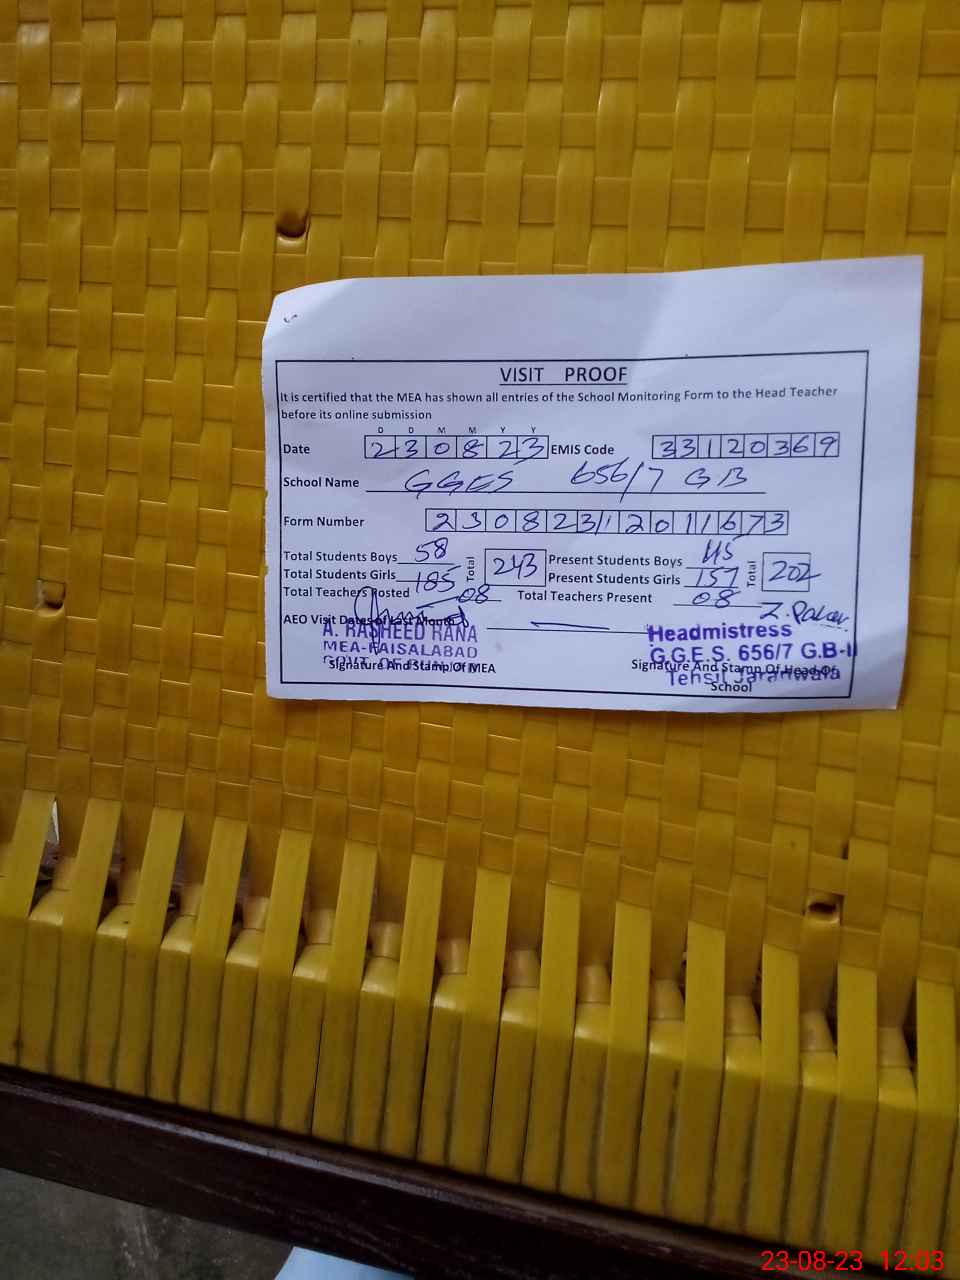 VISIT PROOF
It is certified that the MEA has shown all entries of the School Monitoring Form to the Head Teacher
before its online submission
D D M M Y Y
Date 230823 EMIS Code 33120369
School Name GGES 656/7 GB
Form Number 23082312011673
Total Students Boys 58 Total 243 Present Students Boys 45 Total 202
Total Students Girls 185 Present Students Girls 157
Total Teachers Posted 08 Total Teachers Present 08
AEO Visit Dates of Last Month —
A. RASHEED RANA
MEA-FAISALABAD
Signature And Stamp Of MEA
Headmistress
G.G.E.S. 656/7 G.B-I
Tehsil Jaranwala
Signature And Stamp Of Head Of
School
23-08-23 12:03